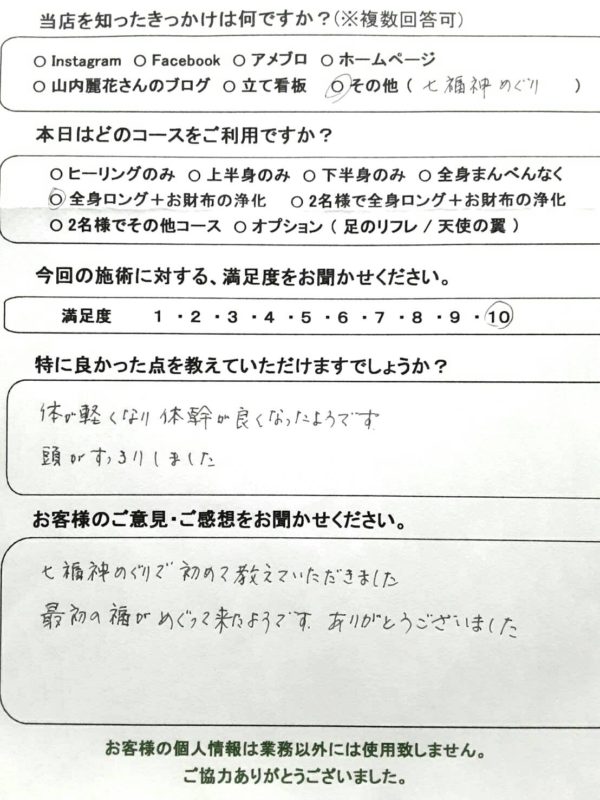 当店を知ったきっかけは何ですか？(※複数回答可)
○ Instagram ○ Facebook ○ アメブロ ○ ホームページ
○ 山内麗花さんのブログ ○ 立て看板 ○ その他 ( 七福神めぐり )
本日はどのコースをご利用ですか？
○ ヒーリングのみ ○ 上半身のみ ○ 下半身のみ ○ 全身まんべんなく
○ 全身ロング＋お財布の浄化 ○ 2名様で全身ロング＋お財布の浄化
○ 2名様でその他コース ○ オプション ( 足のリフレ / 天使の翼 )
今回の施術に対する、満足度をお聞かせください。
満足度 1 ・2 ・3 ・4 ・5 ・6 ・7 ・8 ・9 ・10
特に良かった点を教えていただけますでしょうか？
体が軽くなり体幹が良くなったようです
頭がすっきりしました
お客様のご意見・ご感想をお聞かせください。
七福神めぐりで初めて教えていただきました
最初の福がめぐって来たようです. ありがとうございました
お客様の個人情報は業務以外には使用致しません。
ご協力ありがとうございました。